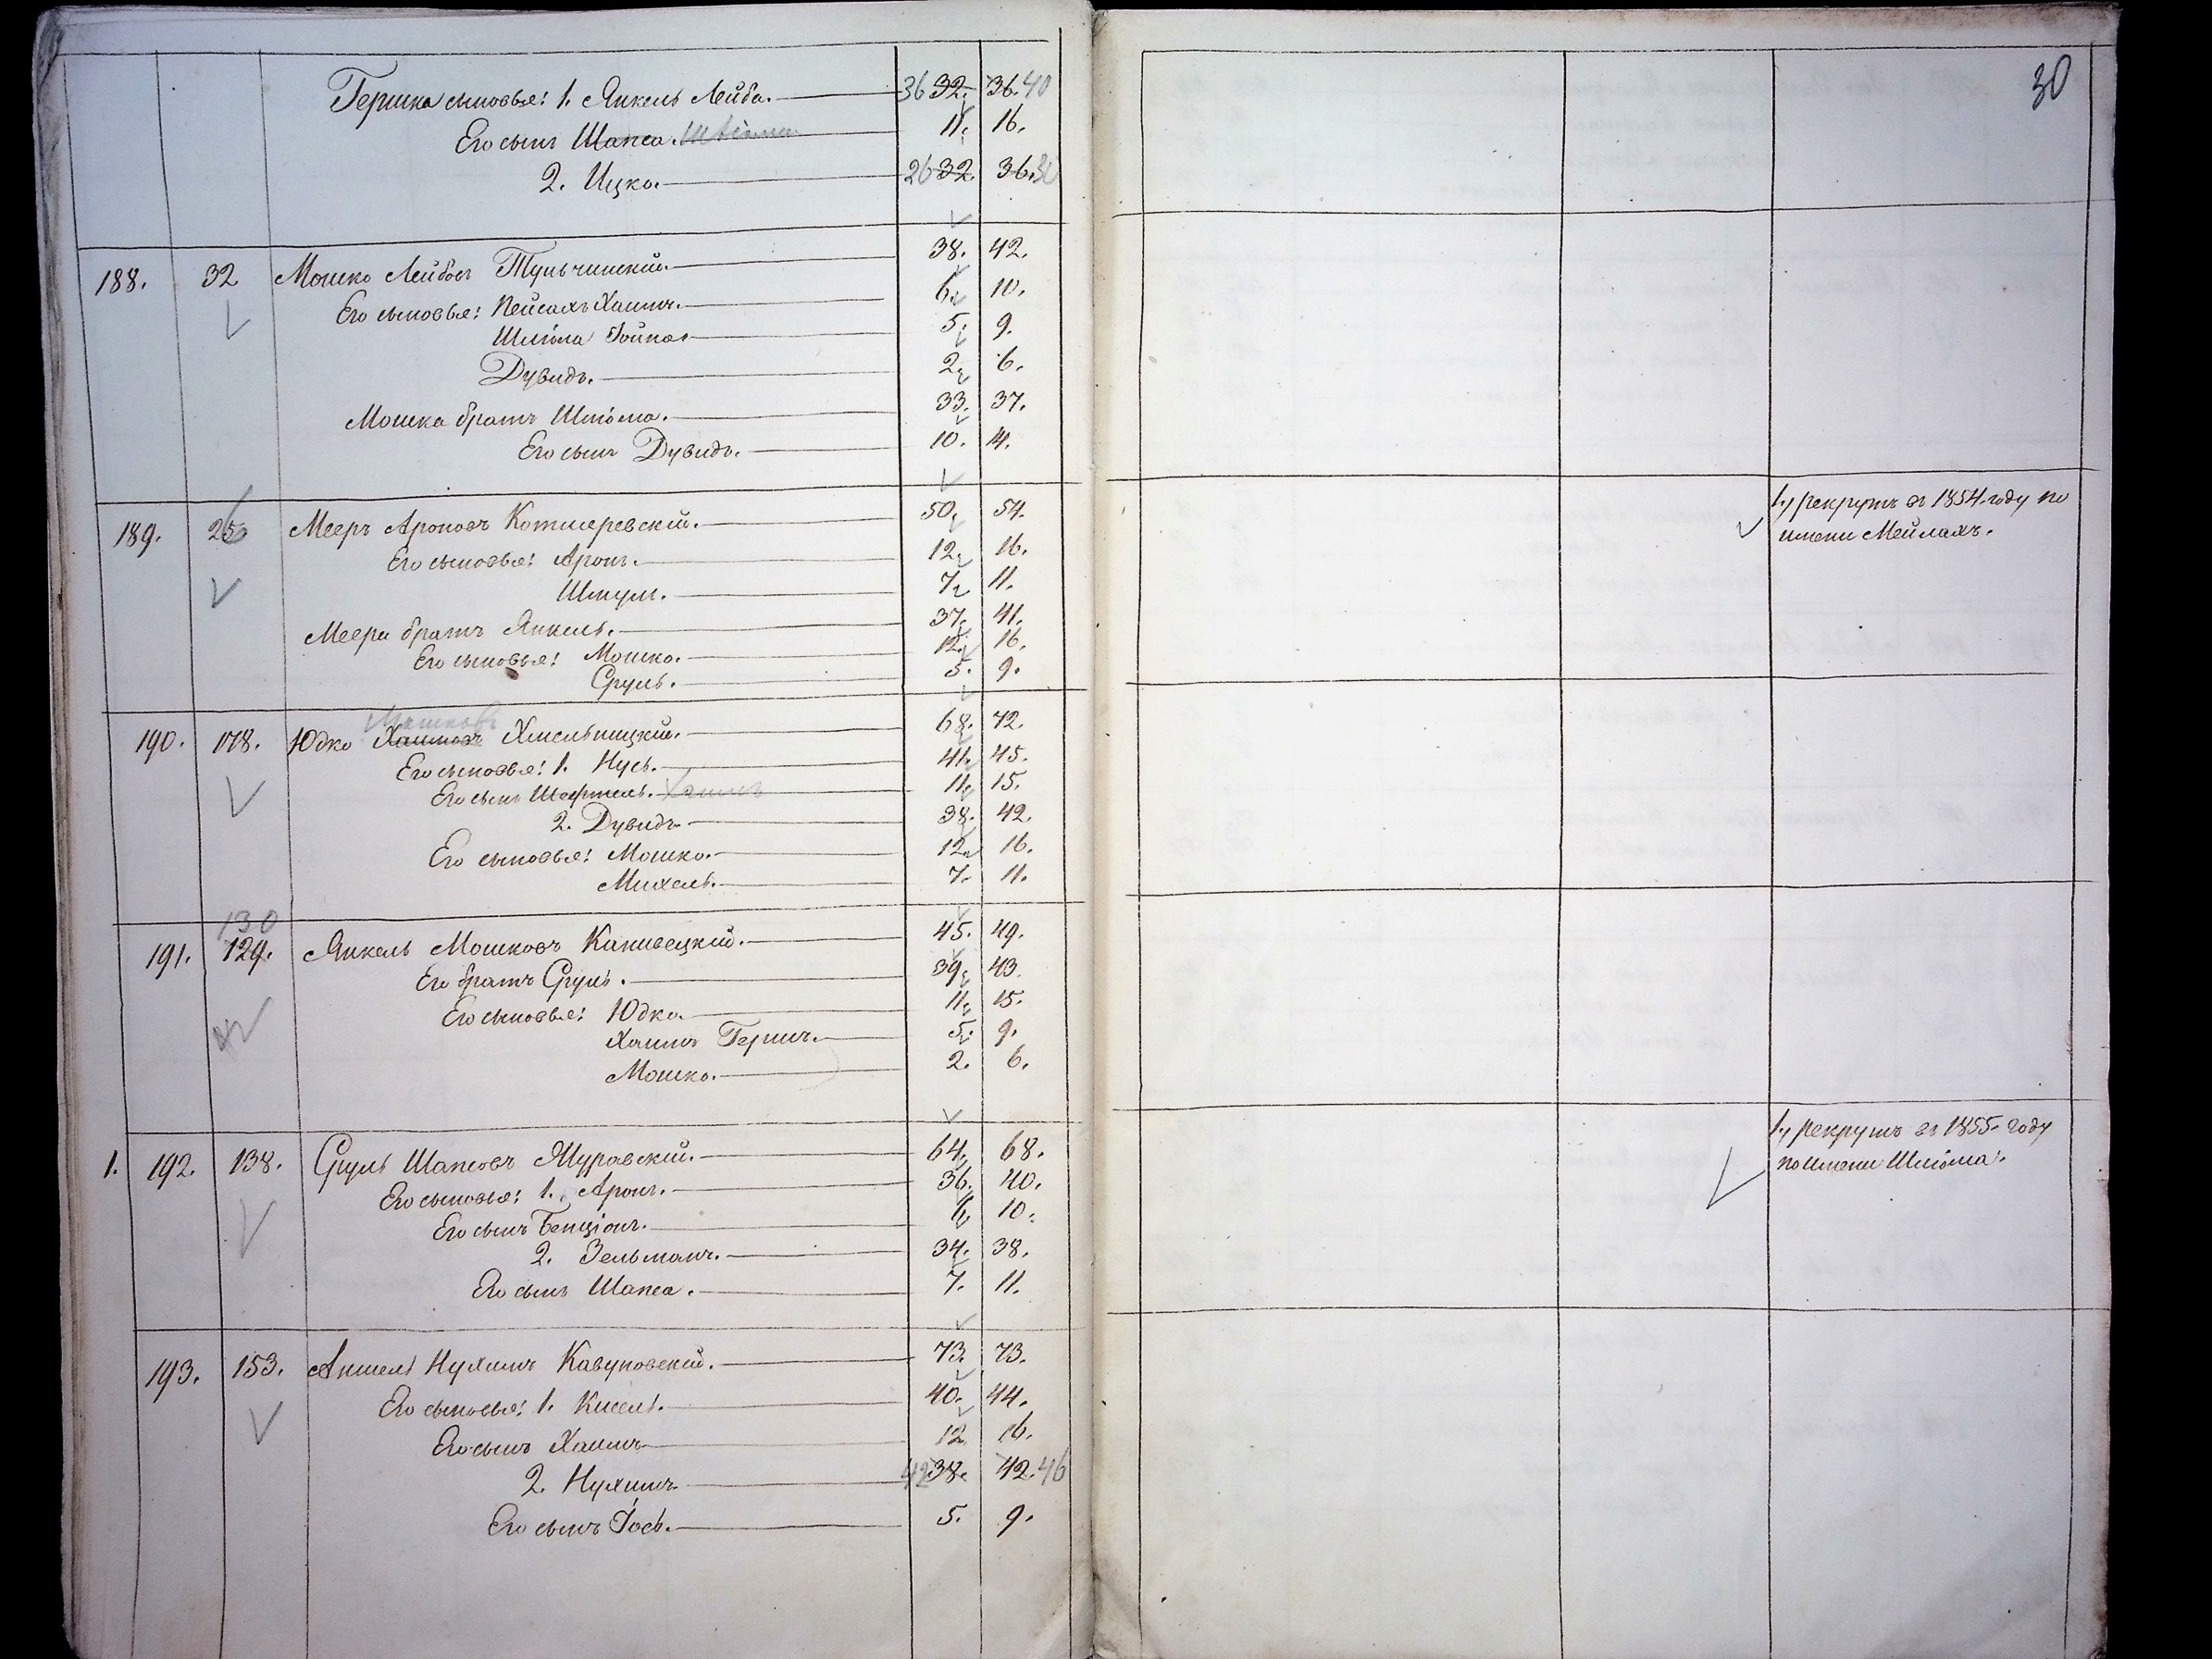 30
Гершка сыновья: 1. Янкель Лейба. 36 32. 36. 40
Его сынъ Шапса. Шлiома 11. 16.
2. Ицко. 26 32. 36.
188. 32 Мошко Лейбовъ Тульчинскiй. 38. 42.
Его сыновья: Пейсахъ Хаимъ. 6. 10.
Шлiома 5. 9.
Дувидъ. 2. 6.
Мошка братъ Шлiома. 33. 37.
Его сынъ Дувидъ. 10. 14.
189. 26 Мееръ Ароновъ 50. 54. 1., рекрутъ въ 1854. году по
Его сыновья: Аронъ. 12. 16. имени Мейлахъ.
Шмулъ. 7. 11.
Меера братъ Янкель. 37. 41.
Его сыновья: Мошко. 12. 16.
Сруль. 5. 9.
Мошковъ
190. 178. Юдко Хаимовъ Хмельницкiй. 68. 72.
Его сыновья: 1. Нусь. 41. 45.
Его сынъ Шефтель. Хаимъ 11. 15.
2. Дувидъ 38. 42.
Его сыновья: Мошко. 12. 16.
Михель. 7. 11.
130
191. 129. Янкель Мошковъ Канивецкiй. 45. 49.
Его братъ Сруль. 39. 43.
Его сыновья: Юдко. 11. 15.
Хаимъ Гершъ. 5. 9.
Мошко. 2. 6.
1. 192. 138. Сруль Шапсовъ Муравскiй. 64. 68. 1., рекрутъ въ 1855. году
Его сыновья: 1. Аронъ. 36. 40. по имени Шлiома.
Его сынъ Бенцiонъ. 6. 10.
2. Зельманъ. 34. 38.
Его сынъ Шапса. 7. 11.
193. 153. Аншель Нухимъ Кавуновскiй. 73. 73.
Его сыновья: 1. Кисель. 40. 44.
Его сынъ Хаимъ 12 16.
2. Нухимъ 42 38. 42. 46
Его сынъ Iось. 5. 9.